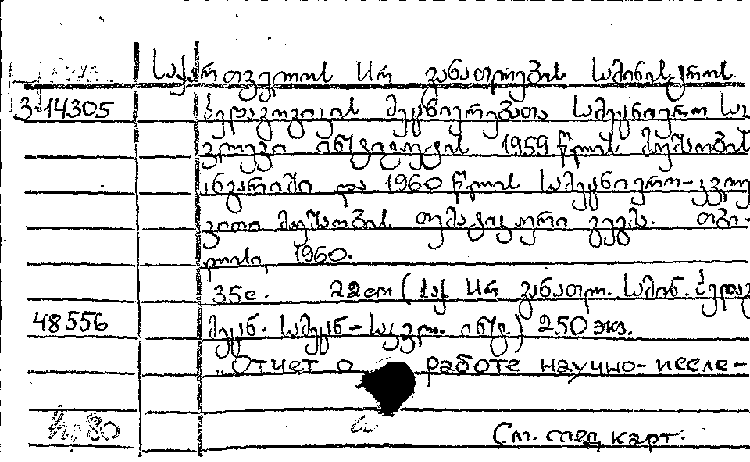 საქართველოს სსრ განათლების სამინისტროს
3-14305 პედაგოგიკის მეცნიერებათა სამეცნიერო სა
კვლევი ინსტიტუტის 1959 წლის მუშაობის
ანგარიში და 1960 წლის სამეცნიერო-კვლე
ვითი მუშაობის თემატიკური გეგმა. თბი-
ლისი, 1960.
35с. 22cm (საქ. სსრ განათლ. სამინ. პედაგ
48556 მეცნ. სამეცნ-საკვლ. ინსტ.) 250 экз.
"Отчет о работе научно-иссле-
См. след карт.